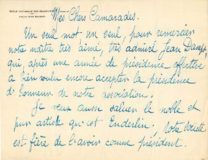 Mes Chers Camarades.
Un seul mot, un seul pour remercier
notre maître très aimé, très admiré Jean
qui après une année de présidence effective
a bien voulu encore accepter la présidence
d'honneur de notre association.
Je veux aussi saluer le noble et
pur artiste qu'est Enderlin,
est fière de l'avoir comme président.